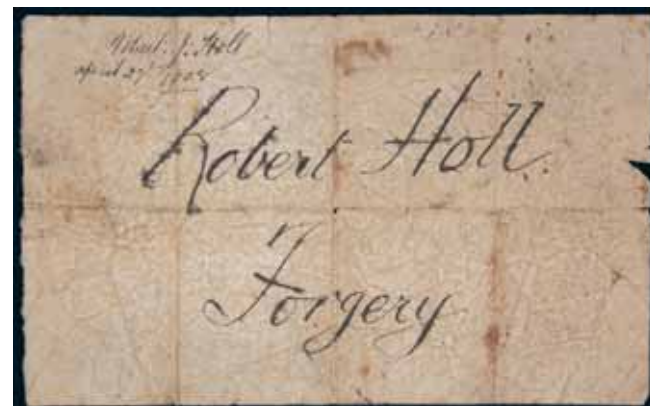 Robt. J. Holl
april 27th 1908
Robert Holl.
Forgery